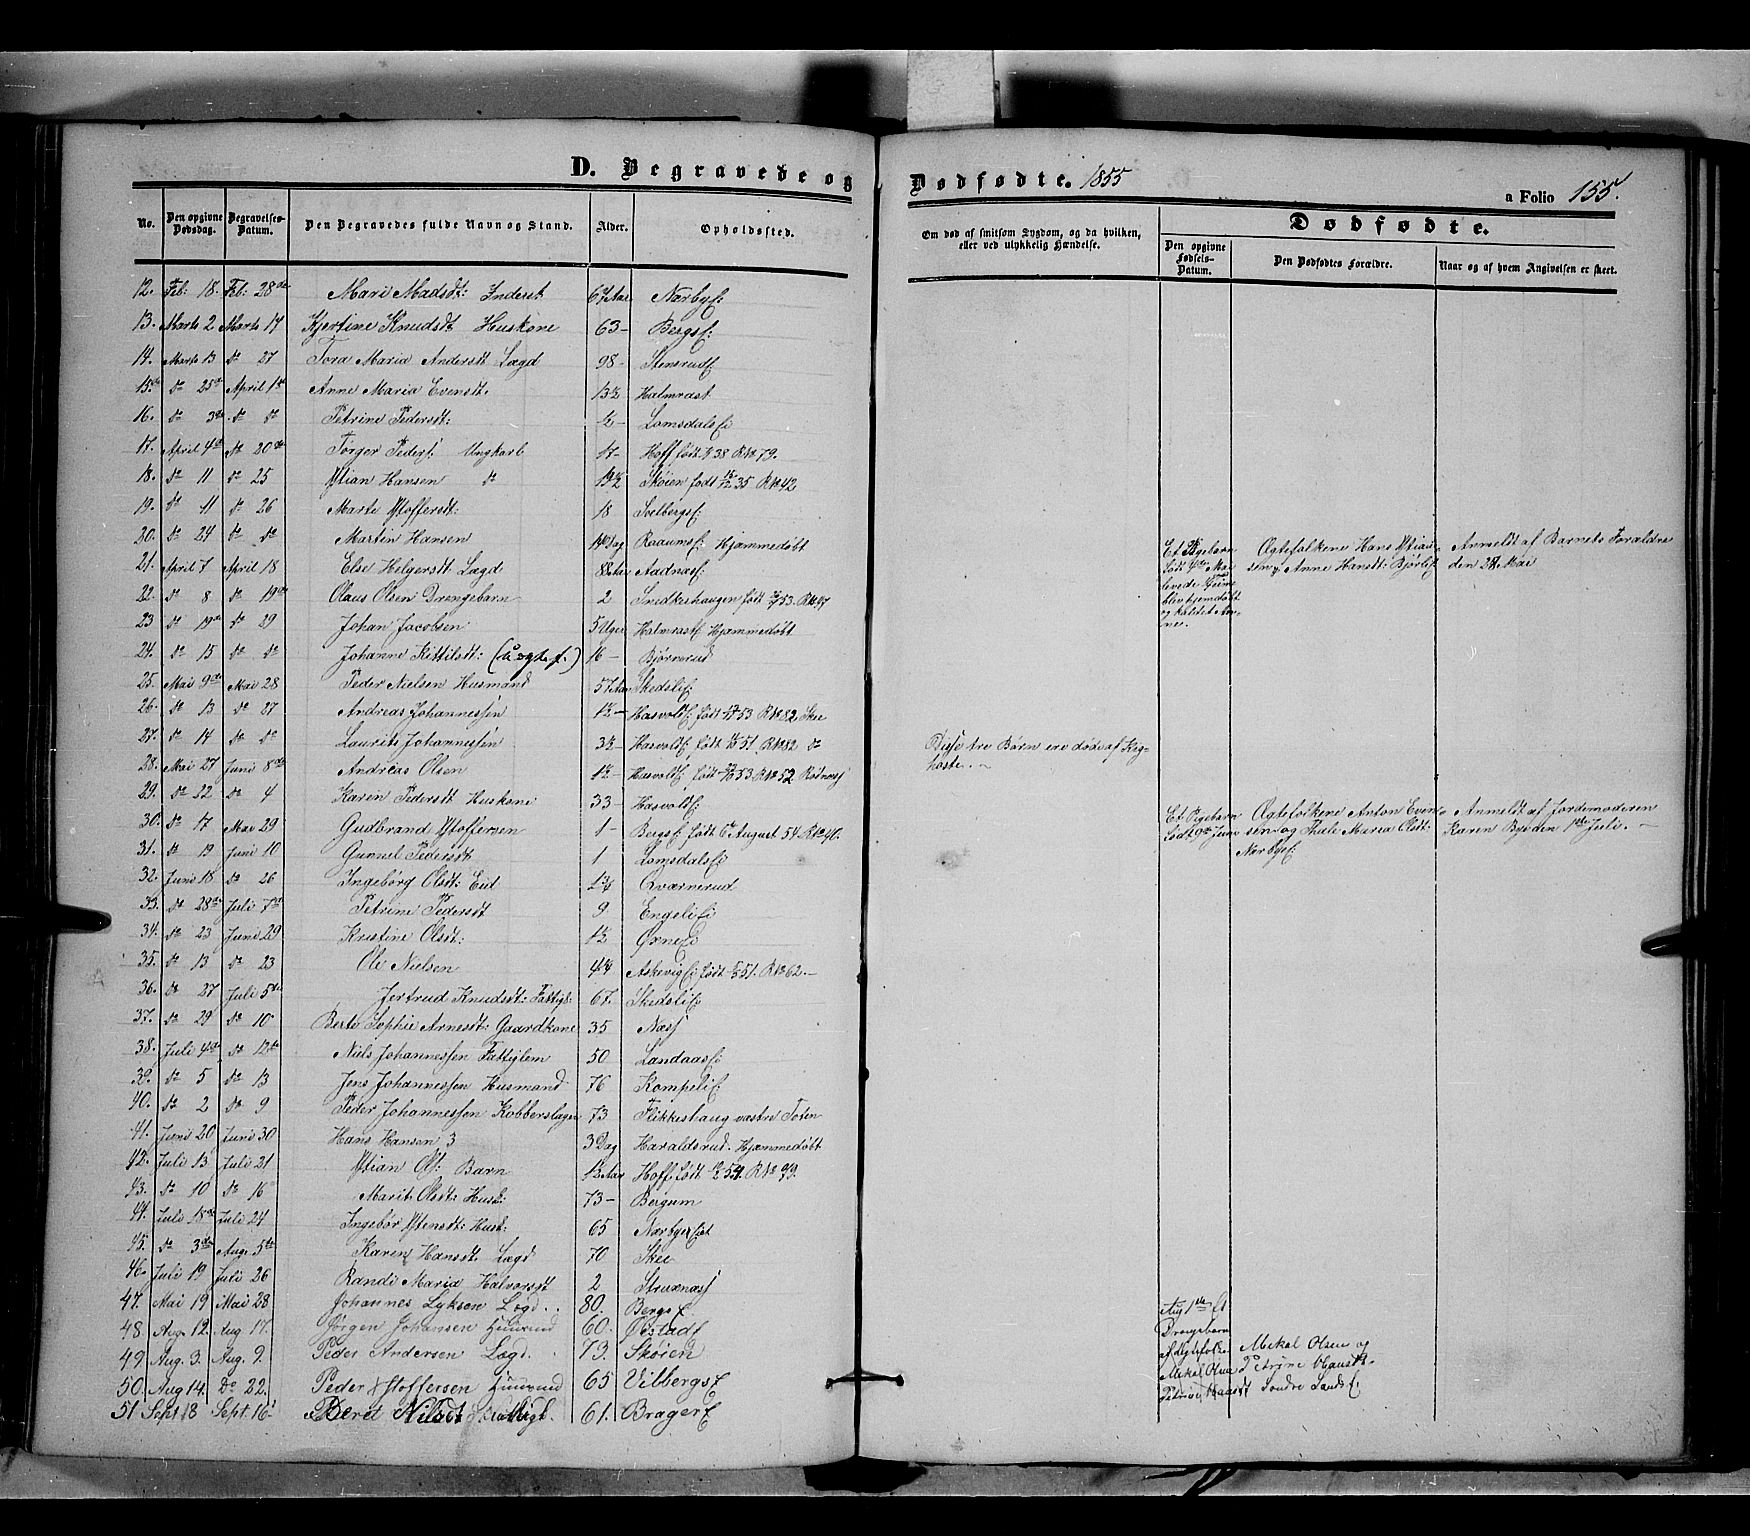 D. Begravede og
No. Den opgivne Dødsdag. Begravelses-Datum. Den Begravedes fulde Navn og Stand. Alder. Opholdssted.
12. Feb: 18. Feb: 28de Mari Madsdt: Inderst 67 Aar Nærbyf:
13. Marts 2 Marts 17 Kjertine Knudsdt Huskone 63 - Bergsf:
14. Marts 13 do 27 Tora Maria Andersdt Lægd 98 - Stensrudf
15. do 25de April 1ste Anne Maria Evensdt. 13½ Halmrast
16. do 3de do do Petrine Pedersdt: ½ - Lomsdalsf:
17. April 4de do 20de Torger Peders. Ungkarl 17 - Hoff født 38 R No 79.
18. do 11 do 25 Xtian Hansen do 19½ Skøien født 35 R No 42
19. do 11 do 26 Marte Xtoffersdt: 18 Solbergsf:
20. do 24 do do Martin Hansen Dag Raaumsf: Hjemmedøbt
21. April 7 April 18 Else Helgersdt Lægd 88 Aar Aadnæsf:
22. do 8 do 19de Olaus Olsen Drengebarn 2 Snedkeshaugen født 53. R No 47
23 do 19de do 29 Johan Jacobsen 5 Uger Halmrastf Hjemmedøbt
24. do 15 do do Johanne Kittilsdt: (uægte f.) 16 - Bjørnerud
25. Mai 9de Mai 28 Peder Nielsen Husmand 57 Aar Skedslif:
26. do 13 do 27 Andreas Johannessen 1½ - Hasvoldf: født 53 R No 82 Skee
27. do 14 do do Laurits Johannessen 3½ - Hasvoldf født 51 R No 82 do
28. Mai 27 Juni 8de Andreas Olsen 1½ - Hasvoldf født 53 R No 52 Rødnæsf
29. do 22 do 4 Karen Pedersdt Huskone 33 - Hasvoldf:
30. do 17 Mai 29 Gudbrand Xtoffersen 1 - Bergsf født 6te August 54. R No 41.
31. do 19 Juni 10 Gunnel Pedersdt 1 Lomsdalsf:
32. Juni 18 do 26 Ingebørg Olsdt: Eid Qværnerud
33. do 28de Juli 7de Petrine Pedersdt 9 Engelif:
34. do 23 Juni 29 Kristine Olsdt: 1½ Øxnef:
35. do 13 do 23 Ole Nielsen Askevigf: født 51. R No 62. -
36. do 27 Juli 5te Jertrud Knudsdt: Fattigl: 67. Skedslif
37. do 29 do 10 Berte Sophie Arnesdt: Gaardkone 35 Næsf
38. Juli 4de do 12te Niels Johannessen Fattiglem 50 Landaasf:
39. do 5 do 13 Jens Johannessen Husmand 76 Kompelif
40. do 2 do 9 Peder Johannessen Kobberslager 73 Flikkeshaug vestre Toten
41. Juni 20 Juni 30 Hans Hansen 3 3 Dag Haraldsrud. Hjemmedøbt
42. Juli 13 Juli 21 Xtian Ols: Barn 1½ Aar Hoff: født 54. R No 49.
43. do 10 do 16 Marit Olsdt: Husk: 73 - Bergum
44. Juli 18de Juli 24 Ingebor Xtensdt: Husk: 65 Nærbyeiet
45. do 3de Aug: 5te Karen Hansdt Lægd 70 Skee
46. Juli 19 Juli 26 Randi Maria Halvorsdt 2 Struxnæsf
47. Mai 19 Mai 28 Johannes Lyksen Lægd. 80. Bergsf.
48. Aug. 12. Aug. 17. Jørgen Johansen Huusmd 60. Østadf
49 Aug. 3. Aug. 9. Peder Andersen Lægd. 73. Skøien
50. Aug 14. Do 22. Peder Xtoffersen Huusmd 65 Vilbergsf
51 Sept 18 Sept. 16 Beret Nilsdt 61. Bragerf
Dødfødte. 1855
a Folio 155.
Om død af smitsom Sygdom, og da hvilken, eller ved ulykkelig Hændelse.
Dødfødte.
Den opgivne Fødsels-Datum. Den Dødfødtes Forældre. Naar og af hvem Angivelsen er skeet.
Et Pigebarn Ægtefolkene Hans Xtian- Anmeldt af Barnets Forældre
født 4de Mai sen og Anne Hansdt: Bjørlif den 28 Mai
levede
blev hjemdøbt
og kaldet An-
ne.
Disse tre Børn ere døde af Kig-
hoste. -
Et Pigebarn Ægtefolkene Anton Even- Anmeldt af Jordemoderen
født 9de Juni sen og Thale Maria Olsdt: Karen Bye den 1ste Juli. -
Nærbyef:
Aug 1ste et
Drengebarn
af Ægtefolke Mekal Olsen og
Mikel Olsen Petrine Hansdt.
Petrine Hansdt Søndre Landsf